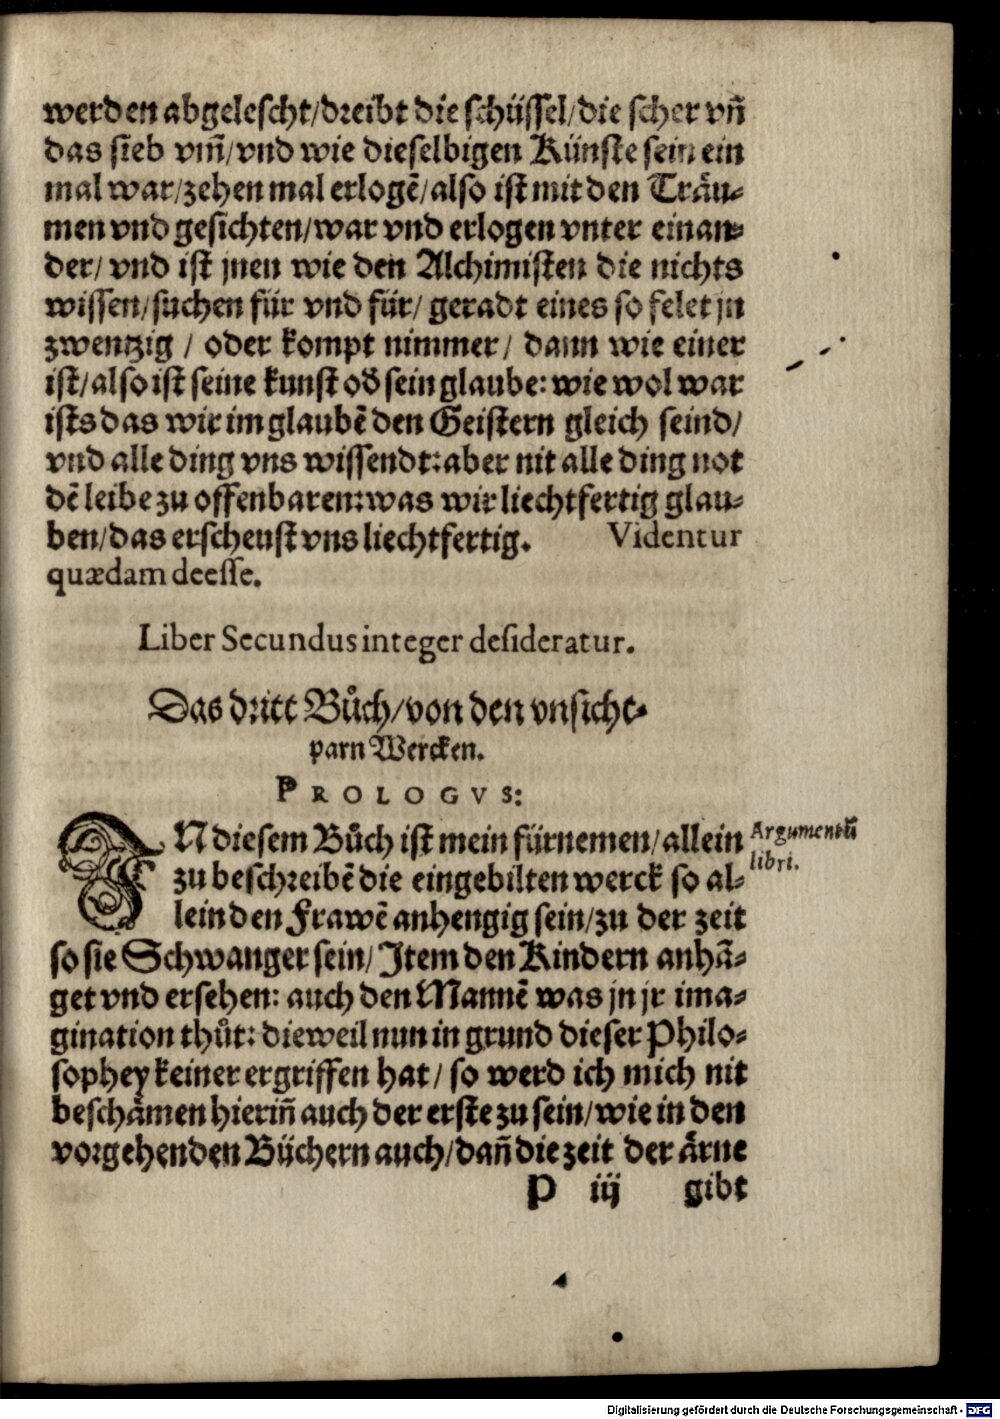 werden abgelescht/dreibt die schüssel/die scher vñ
das sieb vm̃/vnd wie dieselbigen Künste sein ein
mal war/zehen mal erlogẽ/also ist mit den Träu-
men vnd gesichten/war vnd erlogen vnter einan-
der/ vnd ist jnen wie den Alchimisten die nichts
wissen/suchen für vnd für/ geradt eines so felet jn
zwentzig / oder kompt nimmer/ dann wie einer
ist/also ist seine kunst od̃ sein glaube: wie wol war
ists das wir im glaubẽ den Geistern gleich seind/
vnd alle ding vns wissendt: aber nit alle ding not
dẽ leibe zu offenbaren: was wir liechtfertig glau-
ben/das erscheust vns liechtfertig. Videntur
quædam deesse.
Liber Secundus integer desideratur.
Das dritt Bůch/von den vnsicht-
parn Wercken.
PROLOGVS:
IN diesem Bůch ist mein fürnemen/allein
zu beschreibẽ die eingebilten werck so al-
lein den Frawẽ anhengig sein/zu der zeit
so sie Schwanger sein/ Item den Kindern anhã-
get vnd ersehen: auch den Mannẽ was jn jr ima-
gination thůt: dieweil nun in grund dieser Philo-
sophey keiner ergriffen hat/ so werd ich mich nit
beschämen hieriñ auch der erste zu sein/wie in den
vorgehenden Büchern auch/dañ die zeit der ärne
P iij gibt
Argumentũ
libri.
Digitalisierung gefördert durch die Deutsche Forschungsgemeinschaft - DFG